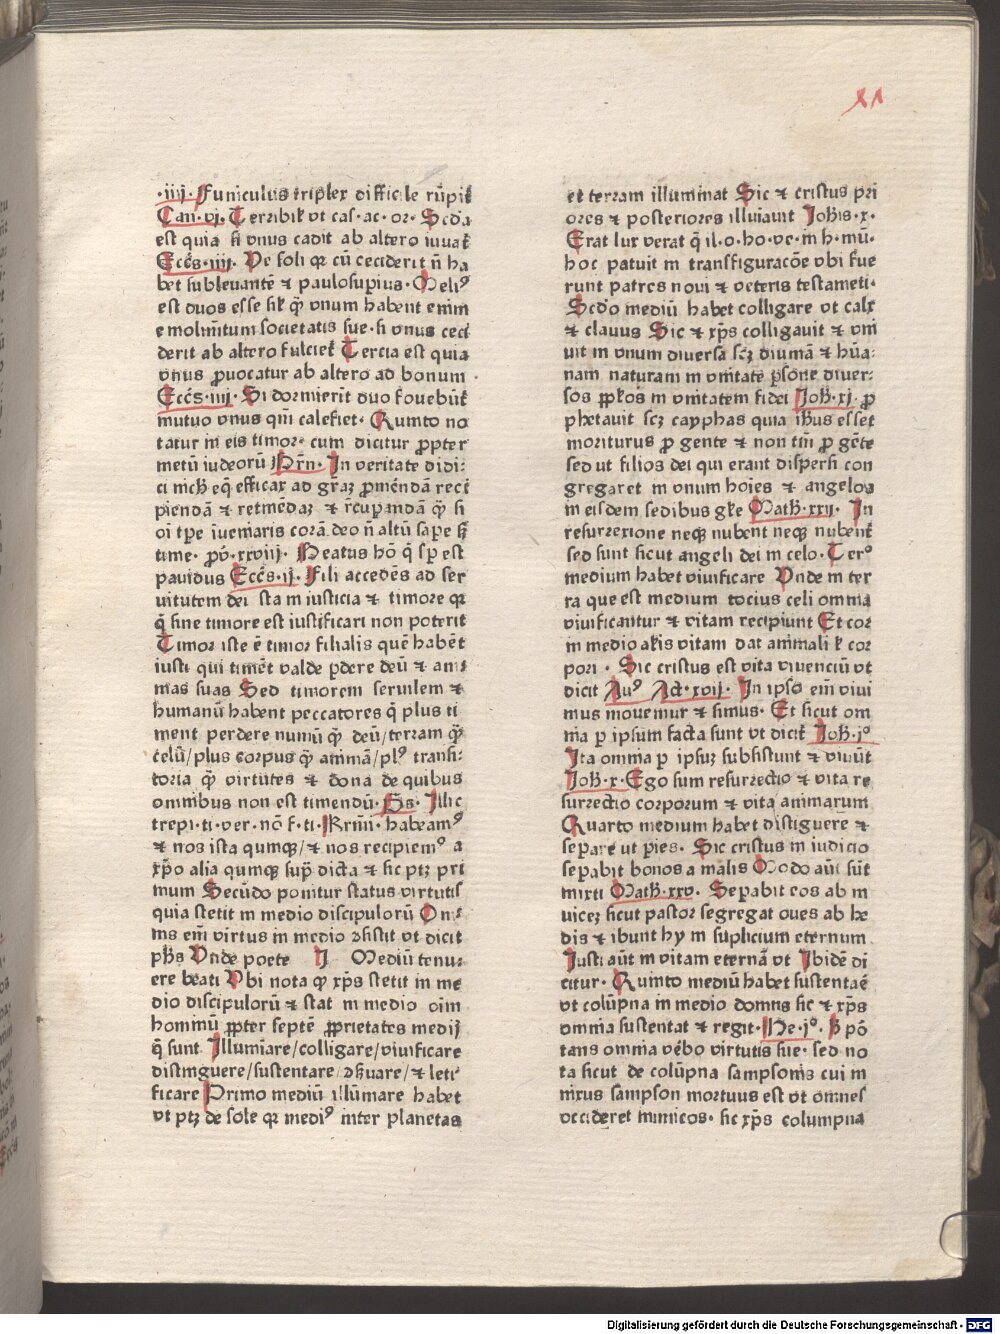 XI
·iiij· Funiculus triplex difficile rūpit᷑
Can·vj· Terribił vt cas·ac·or· Scd̄a
est quia si vnus cadit ab altero iuuat᷑
Eccēs·iiij· Ve soli qꝛ cū ceciderit n̄ ha
bet subleuantē ⁊ paulosupius· Meliꝰ
est duos esse siḱ qꝫ vnum habent enim
emolim̄tum societatis sue· si vnus ceci
derit ab altero fulciet᷑ Tercia est quia
vnus ꝓuocatur ab altero ad bonum
Eccēs·iiij· Si dormierit duo fouebūt᷑
mutuo vnus qm̄ calefiet· Quinto no
tatur in eis timor· cum dicitur ꝓpter
metū iudeorū Brn̄· In veritate didi:
ci nich̄ eqꝫ efficax ad grāꝫ ꝓmēndā reci
piendā ⁊ retinēdaꝫ ⁊ rēcupandā qꝫ si
oī tp̄e īueniaris corā deo n̄ altū sape sꝫ
time· ꝓv̄·xxviij· Beatus hō q̄ sp̄ est
pauidus Eccēs·ij· Fili accedēs ad ser
uitutem dei sta in iusticia ⁊ timore qꝛ
q̄ sine timore est iustificari non poterit
Timor iste ē timor filialis quē habēt
iusti qui timēt valde ꝑdere deū ⁊ ani
mas suas Sed timorem seruilem ⁊
humanū habent peccatores q̄ plus ti
ment perdere numū qꝫ deū/terram qꝫ
celū/plus corpus qꝫ animā/plꝰ transi:
toria qꝫ virtutes ⁊ dona de quibus
omnibus non est timendū· Ps̄· Illic
trepi·ti·ver·nō f·ti· Krm̄i· habeamꝰ
⁊ nos ista qumqꝫ/⁊ nos recipiemꝰ a
xp̄o alia qumqꝫ supꝰ dicta ⁊ sic ptꝫ pri
mum Secūdo ponitur status virtutis
quia stetit in medio discipulorū Om
nis em̄ virtus in medio ꝯsistit vt dicit
ph̄s Vnde poete Mediū tenu:
ere beati Vbi nota qꝫ xp̄s stetit in me
dio discipulorū ⁊ stat in medio oīm
hominū ꝓpter septē ꝓprietates medij
q̄ sunt Illumīare/colligare/viuificare
distinguere/sustentare ꝯseruare/⁊ leti
ficare Primo mediū illūinare habet
vt ptꝫ de sole qꝛ mediꝰ inter planetas
et terram illuminat Sic ⁊ cristus pri
ores ⁊ posteriores illuiauit Joh̄is·x·
Erat lux verat q̄ il·o·ho·ve·in h·mū·
hoc patuit in transfiguracōe vbi fue
runt patres noui ⁊ veteris testameti·
Scd̄o mediū habet colligare vt calx
⁊ clauus Sic ⁊ xp̄s colligauit ⁊ vni
uit in vnum diuersa scꝫ diuinā ⁊ hūa:
nam naturam in vnitate ꝑsone diuer:
sos ppłos in vnitatem fidei Joh̄·xj· ꝓ
phetauit scꝫ cayphas quia ih̄us esset
moriturus ꝓ gente ⁊ non tm̄ ꝓ gēte
sed ut filios dei qui erant dispersi con
gregaret in vnum hoīes ⁊ angelos
in eisdem sedibus głe Math̄·xxij· In
resurrexione neqꝫ nubent neqꝫ nubent᷑
sed sunt sicut angeli dei in celo· Tercꝰ
medium habet viuificare Vnde in ter
ra que est medium tocius celi omnia
viuificantur ⁊ vitam recipiunt Et cor
in medio alis vitam dat animali ł cor
pori · Sic cristus est vita viuenciū vt
dicit Auꝰ Act·xvij· In ipso em̄ viui
mus mouemur ⁊ simus· Et sicut om
nia ꝑ ipsum facta sunt vt dicit᷑ Joh̄·jº
Ita omnia ꝑ ipsuꝫ subsistunt ⁊ viuūt
Joh̄·x· Ego sum resurrectio ⁊ vita re
surrectio corporum ⁊ vita animarum
Quarto medium habet distiguere ⁊
separe ut p̄ies· Sic cristus in iudicio
seꝑabit bonos a malis Modo aūt sūt
mixti Math̄·xxv· Seꝑabit eos ab in
uiceꝫ sicut pastor segregat oues ab he
dis ⁊ ibunt hy in suplicium eternum
Iusti aūt in vitam eternā vt Ibidē di
citur· Quinto mediū habet sustentaē
vt colūpna in medio domus sic ⁊ xp̄s
omnia sustentat ⁊ regit· He·jº· P pō
tans omnia vēbo virtutis sue· sed no
ta sicut de colūpna sampsonis cui in
nixus sampson mortuus est vt omnes
occideret inimicos· sic xp̄s columpna
Digitalisierung gefördert durch die Deutsche Forschungsgemeinschaft - DFG